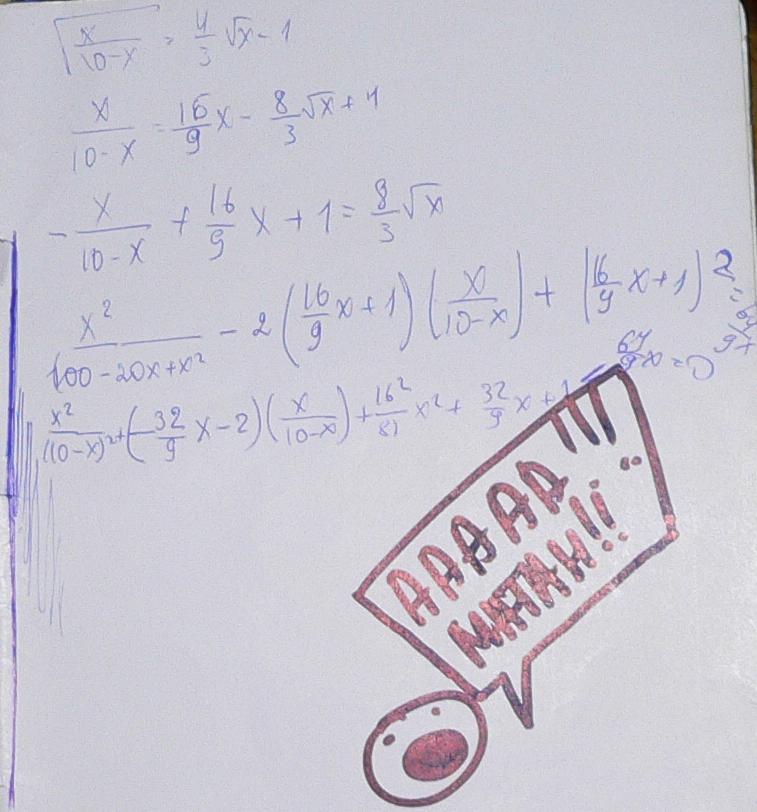 √(x/(10-x)) = 4/3 √x - 1
x/(10-x) = 16/9 x - 8/3 √x + 1
- x/(10-x) + 16/9 x + 1 = 8/3 √x
x²/(100-20x+x²) - 2(16/9 x+1)(x/(10-x)) + (16/9 x+1)² = 64/9 x
x²/(10-x)² + (-32/9 x-2)(x/(10-x)) + 16²/81 x² + 32/9 x + 1 - 64/9 x = 0
АААААА!!!
МАТАН!!..